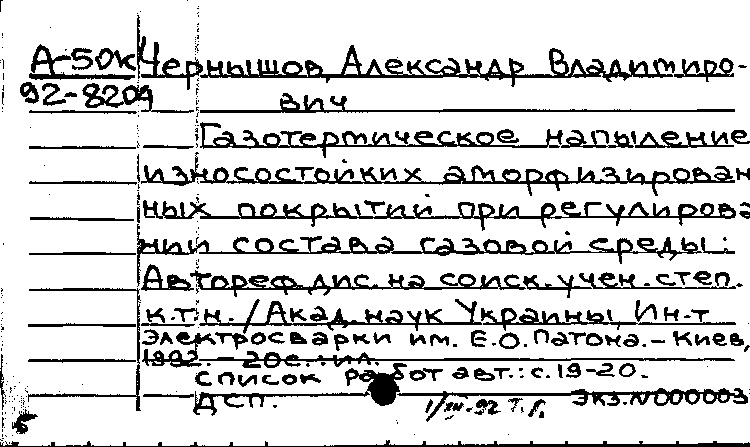 А-50к Чернышов, Александр Владимиро-
92-8204 вич
Газотермическое напыление
износостойких аморфизирован
ных покрытий при регулирова
нии состава газовой среды:
Автореф. дис. на соиск. учен. степ.
к.т.н. / Акад. наук Украины, Ин-т
электросварки им. Е.О. Патона. - Киев,
1992. - 20с.: ил.
Список работ авт.: с.19-20.
ДСП. 1/III-92 т.г. Экз.N000003
Б